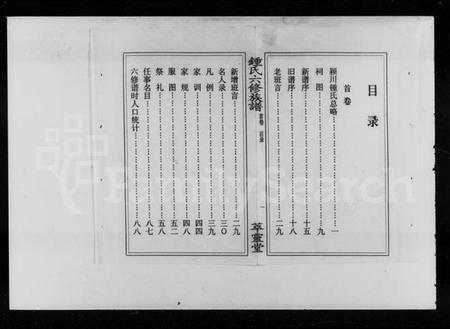 目录
首卷
颍川锺氏总略……一
祠图……九
新谱序……十五
旧谱序……十八
老班言……二九
锺氏六修族譜 首卷 目录 一 萃靈堂
新增班言……二九
名人录……三〇
凡例……三九
家训……四四
家规……四八
服图……五二
祭礼……五八
任事名目……八七
六修谱时人口统计……八八
FamilySearch